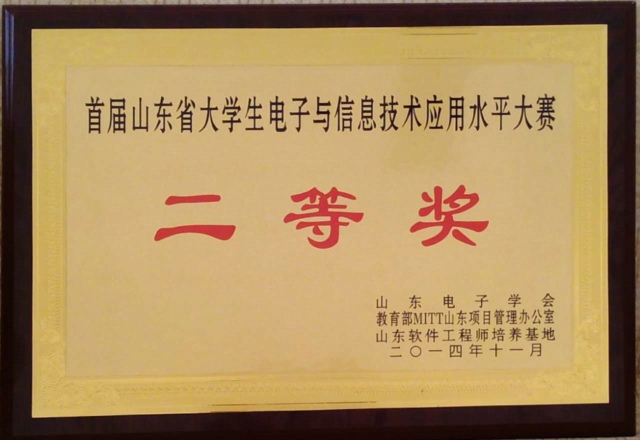 首届山东省大学生电子与信息技术应用水平大赛
二等奖
山东电子学会
教育部MITT山东项目管理办公室
山东软件工程师培养基地
二〇一四年十一月